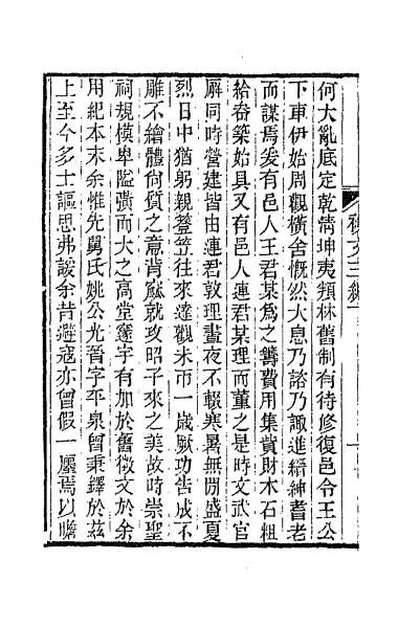 何大亂底定乾清坤夷頖林舊制有待修復邑令王公
下車伊始周觀橫舍慨然大息乃諮乃諏進縉紳耆老
而謀焉爰有邑人王君某為之籌費用集貲財木石粗
給畚築始具又有邑人連君某理而董之是時文武官
廨同時營建皆由連君敦理晝夜不輟寒暑無閒盛夏
烈日中猶躬親簦笠往來達觀未帀一歲厥功告成不
雕不繪體尙質之意肯
就攻昭子來之美故時崇聖
祠規模卑隘廣而大之高堂邃宇有加於舊徵文於余
用紀本末余惟先舅氏姚公光晉字平泉曾秉鐸於茲
上至今多士謳思弗諼余昔避寇亦曾假一廛焉以瞻